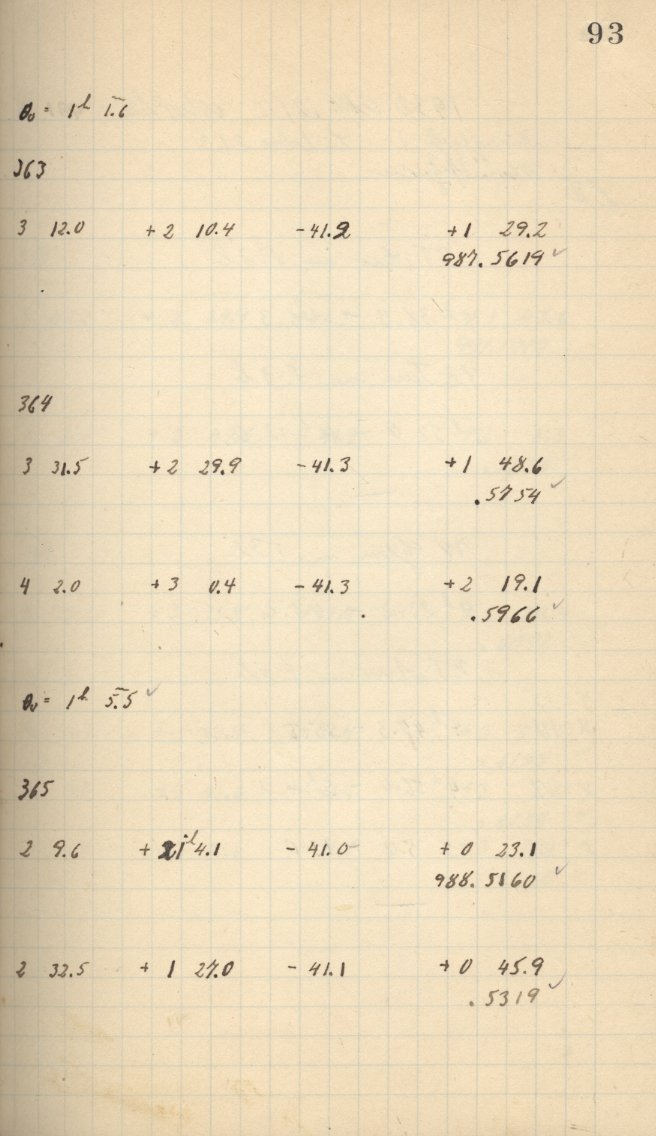 93
θ₀ = 1ʰ 1.6
363
3 12.0 +2 10.4 -41.2 +1 29.2
987.5619 ✓
364
3 31.5 +2 29.9 -41.3 +1 48.6
.5754 ✓
4 2.0 +3 0.4 -41.3 +2 19.1
.5966 ✓
θ₀ = 1ʰ 5.5 ✓
365
2 9.6 + 1ʰ 4.1 -41.0 +0 23.1
988.5160 ✓
2 32.5 + 1 27.0 -41.1 +0 45.9
.5319 ✓